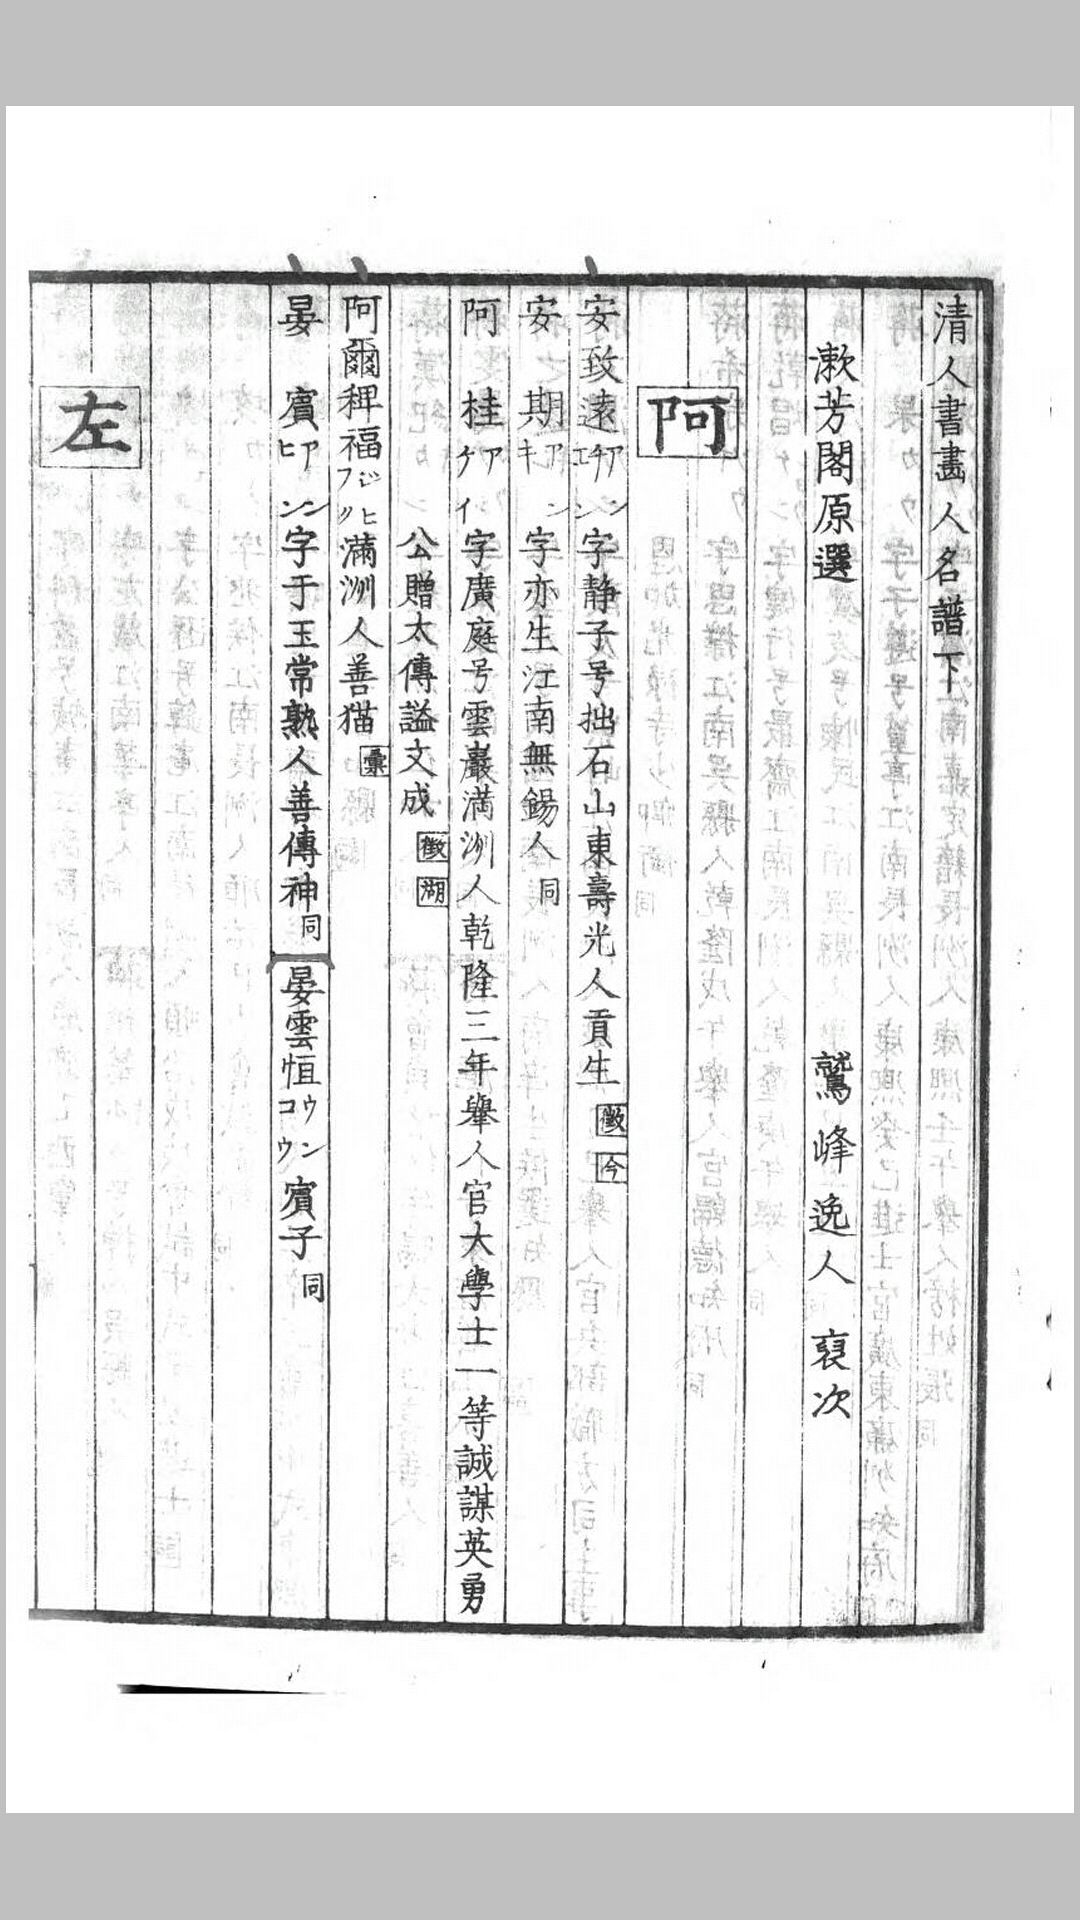 清人書畫人名譜下
漱芳閣原選 鷲峰逸人 裒次
阿
安致遠 アンチエン 字静子号拙石山東壽光人貢生 徴 今
安 期 アンキ 字亦生江南無錫人 同
阿 桂 アケイ 字廣庭号雲巖満洲人乾隆三年舉人官大學士一等誠謀英勇
公贈太傳謚文成 徴 湖
阿爾稗福 満洲人善猫 彙
晏 賓 アンヒン 字于玉常熟人善傳神 同 晏雲恒 ウンコウ 賓子 同
左